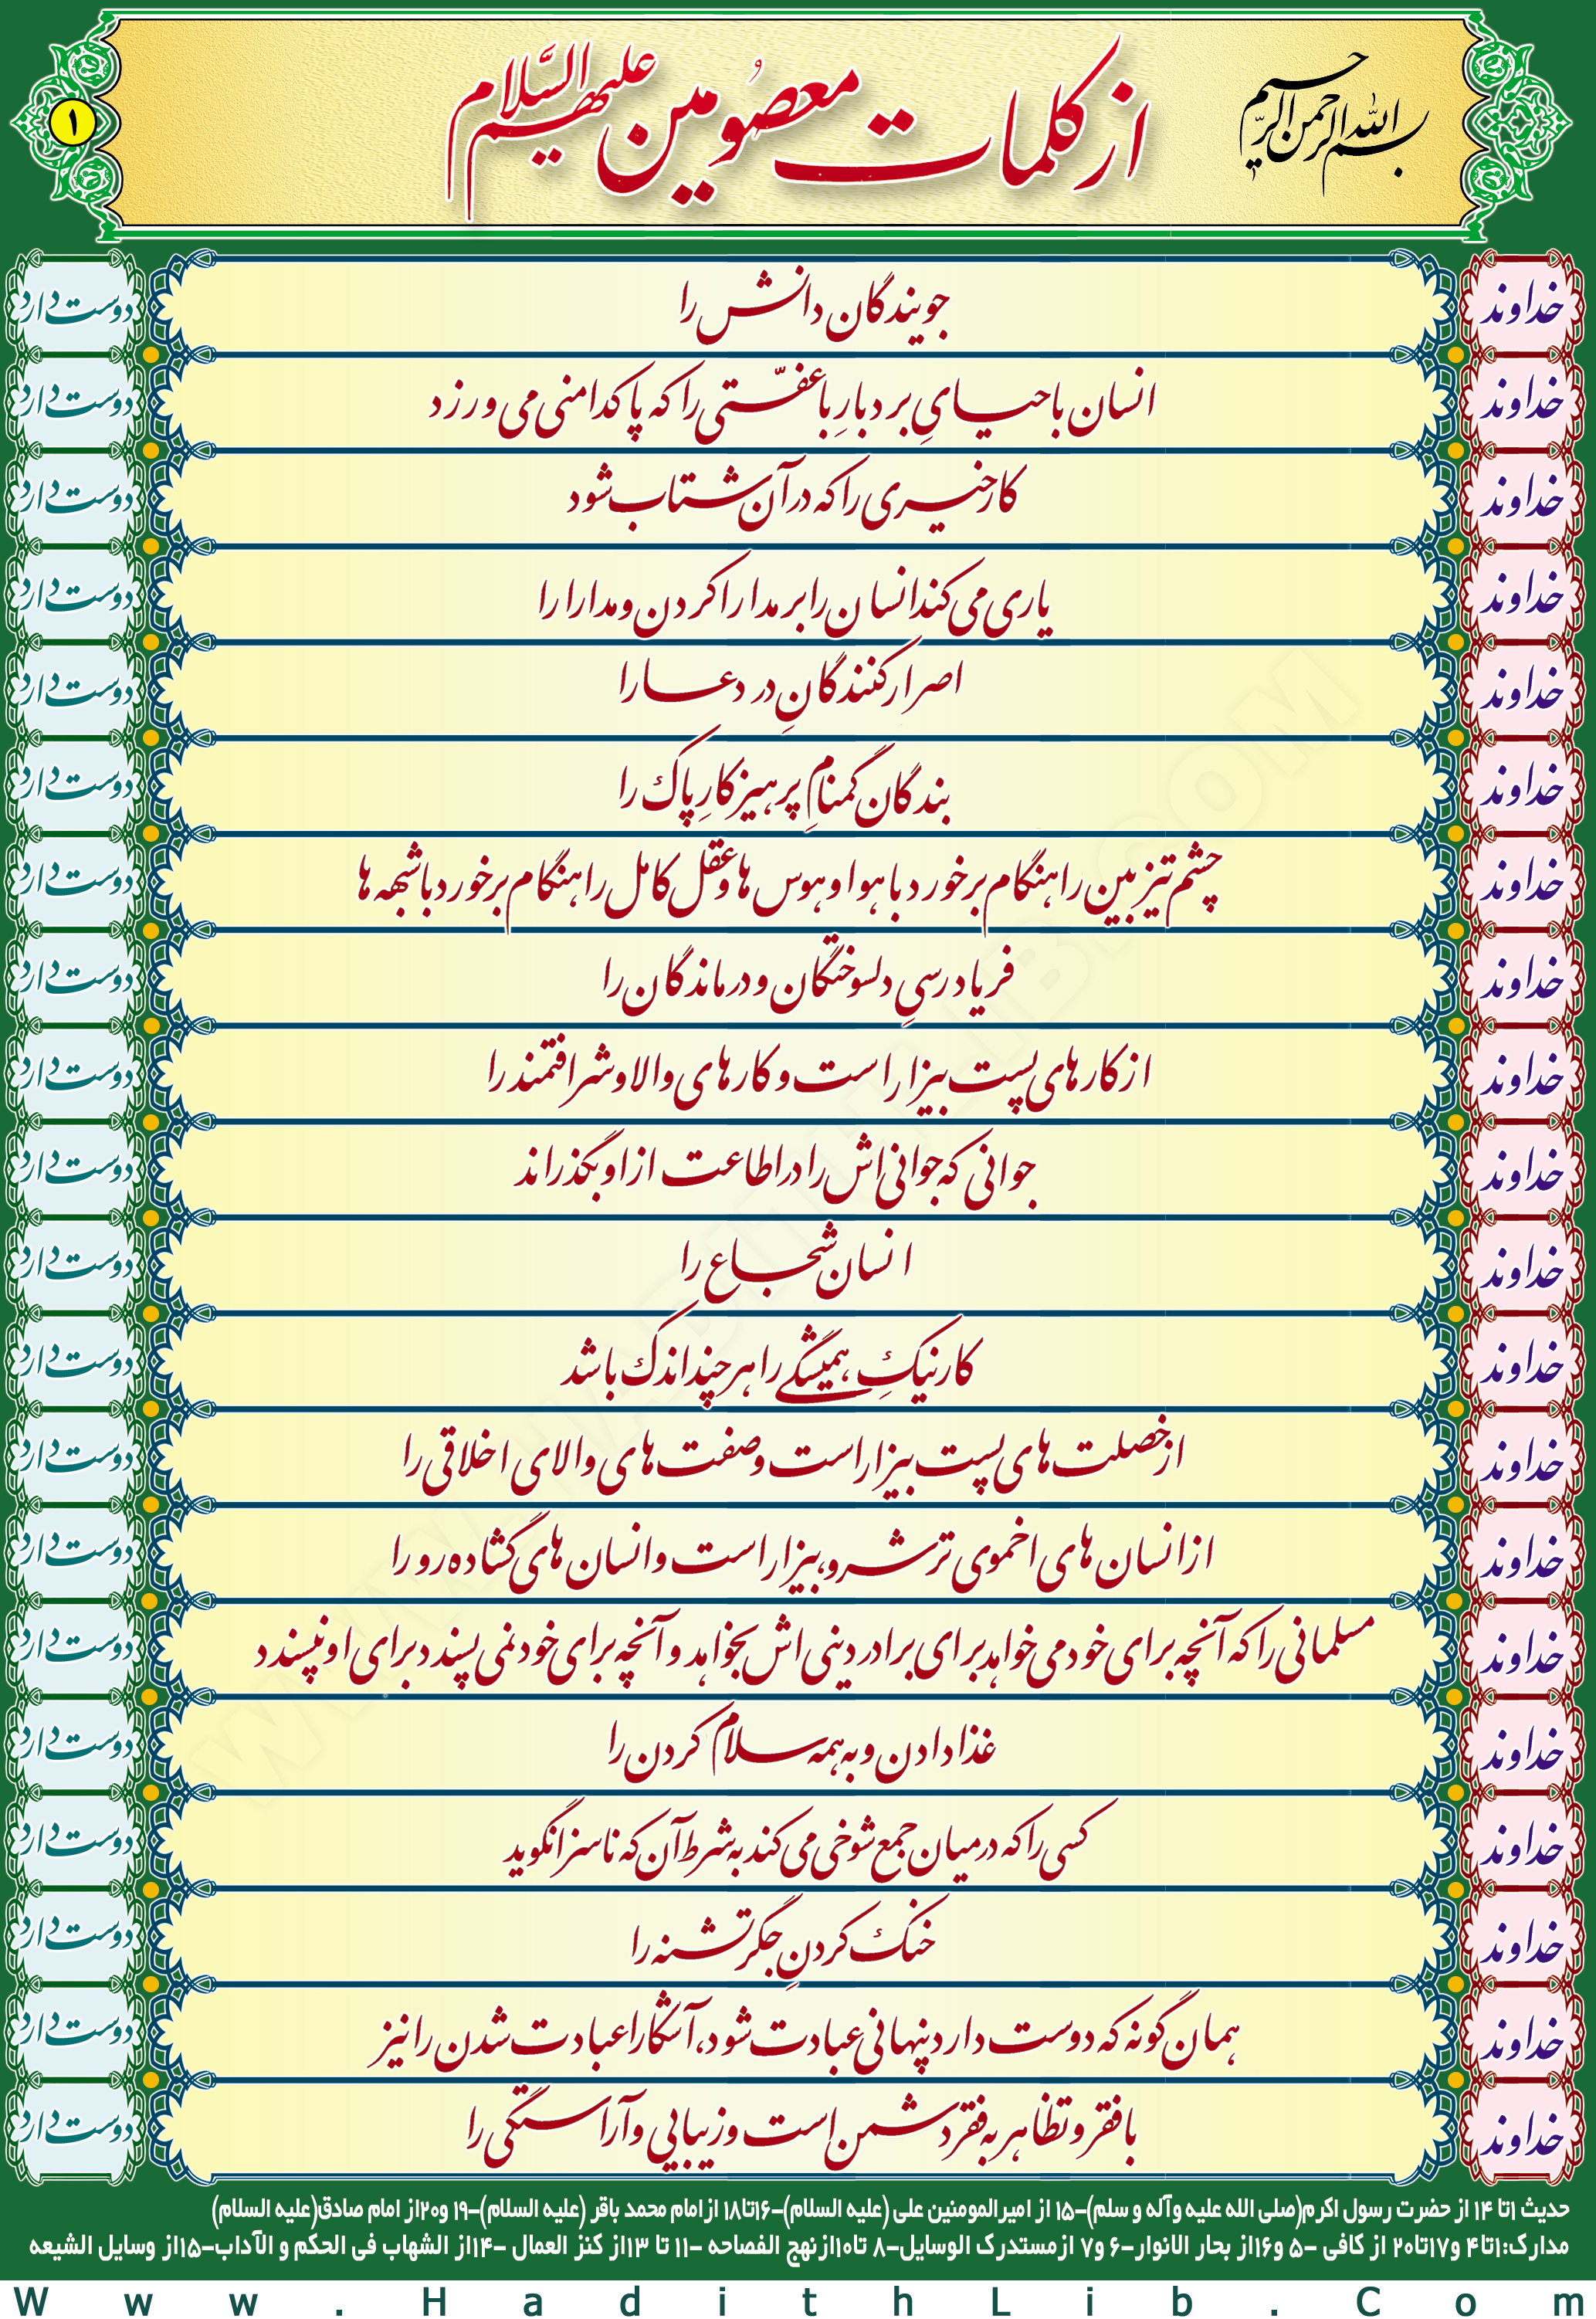 بسم الله الرحمن الرحیم
از کلمات معصومین علیهم السَّلام
۱
خداوند جویندگان دانش را دوست دارد
خداوند انسان باحیایِ بردبارِ باعفّتی را که پاکدامنی می ورزد دوست دارد
خداوند کارخیری را که در آن شتاب شود دوست دارد
خداوند یاری می کند انسان را بر مدارا کردن و مدارا را دوست دارد
خداوند اصرار کنندگانِ در دعا را دوست دارد
خداوند بندگان گمنامِ پرهیزکارِ پاک را دوست دارد
خداوند چشم تیزبین را هنگام برخورد با هوا و هوس ها و عقل کامل را هنگام برخورد با شبهه ها دوست دارد
خداوند فریادرسیِ دلسوختگان و درماندگان را دوست دارد
خداوند از کارهای پست بیزار است و کارهای والا و شرافتمند را دوست دارد
خداوند جوانی که جوانی اش را در اطاعت از او بگذراند دوست دارد
خداوند انسان شجاع را دوست دارد
خداوند کار نیکِ همیشگی را هر چند اندک باشد دوست دارد
خداوند از خصلت های پست بیزار است و صفت های والای اخلاقی را دوست دارد
خداوند از انسان های اخموی ترشرو، بیزار است و انسان های گشاده رو را دوست دارد
خداوند مسلمانی را که آنچه برای خود می خواهد برای برادر دینی اش بخواهد و آنچه برای خود نمی پسندد برای او نپسندد دوست دارد
خداوند غذا دادن و به همه سلام کردن را دوست دارد
خداوند کسی را که در میان جمع شوخی می کند به شرط آن که ناسزا نگوید دوست دارد
خداوند خنک کردنِ جگر تشنه را دوست دارد
خداوند همان گونه که دوست دارد پنهانی عبادت شود، آشکارا عبادت شدن را نیز دوست دارد
خداوند با فقر و تظاهر به فقر دشمن است و زیبایی و آراستگی را دوست دارد
حدیث ۱تا ۱۴ از حضرت رسول اکرم(صلی الله علیه وآله و سلم)-۱۵ از امیرالمومنین علی (علیه السلام)-۱۶تا۱۸ ازامام محمد باقر (علیه السلام)-۱۹ و۲۰از امام صادق(علیه السلام)
مدارک:۱تا۴ و۱۷تا۲۰ از کافی -۵ و۱۶از بحار الانوار-۶ و۷ ازمستدرک الوسایل-۸ تا۱۰ازنهج الفصاحه -۱۱ تا ۱۳از کنز العمال -۱۴از الشهاب فی الحکم و الآداب-۱۵از وسایل الشیعه
Www.HadithLib.Com
WWW.HADITHLIB.COM